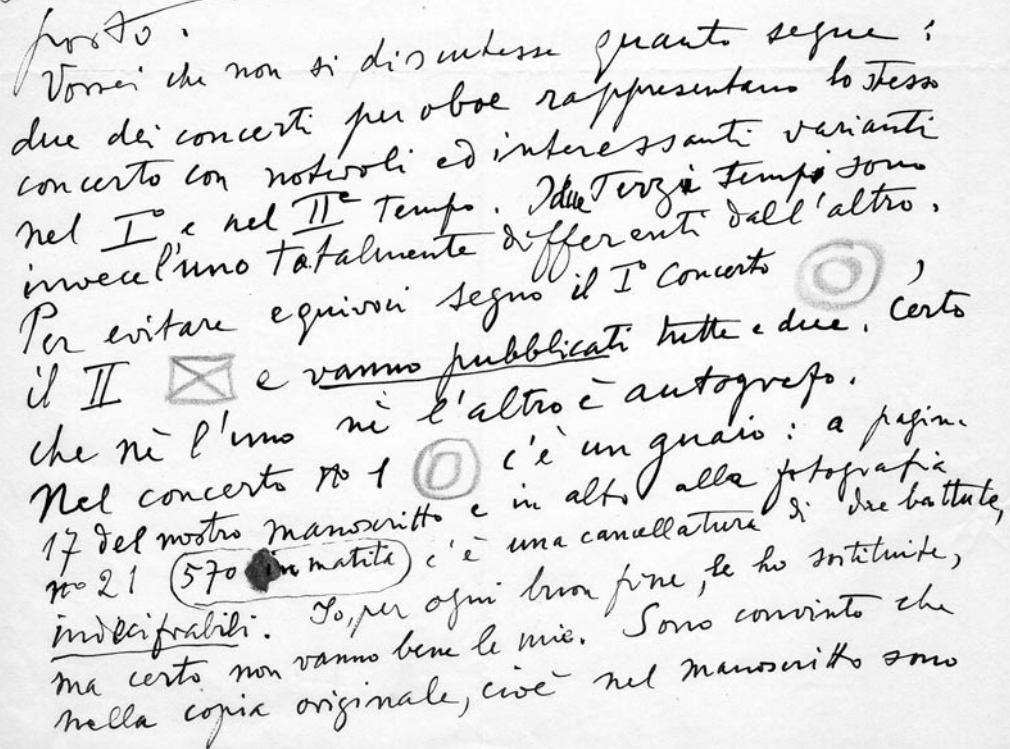 posto.
Vorrei che non si discutesse quanto segue:
due dei concerti per oboe rappresentano lo stesso
concerto con notevoli ed interessanti varianti
nel I° e nel II° Tempo. I due Terzi tempi sono
invece l'uno totalmente differenti dall'altro.
Per evitare equivoci segno il I° Concerto ,
il II e vanno pubblicati tutte e due. Certo
che nè l'uno nè l'altro è autografo.
Nel concerto no 1 c'è un guaio: a pagina
17 del nostro manoscritto e in alto alla fotografia
no 21 (570 in matita) c'è una cancellatura di due battute,
indecifrabili. Io, per ogni buon fine, le ho sostituite,
ma certo non vanno bene le mie. Sono convinto che
nella copia originale, cioè nel manoscritto sono